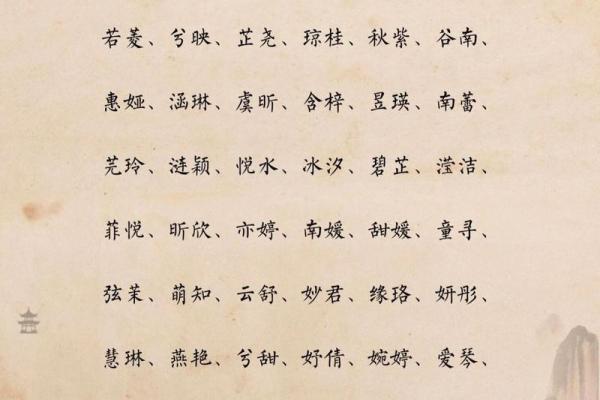 若菱、兮映、芷尧、琼桂、秋紫、谷南、
惠娅、涵琳、虞昕、含梓、昱瑛、南蕾、
芫玲、涟颖、悦水、冰汐、碧芷、滢洁、
菲悦、昕欣、亦婷、南媛、甜媛、童寻、
弦茉、萌知、云舒、妙君、缘珞、妍彤、
慧琳、燕艳、兮甜、妤倩、婉婷、爱琴、